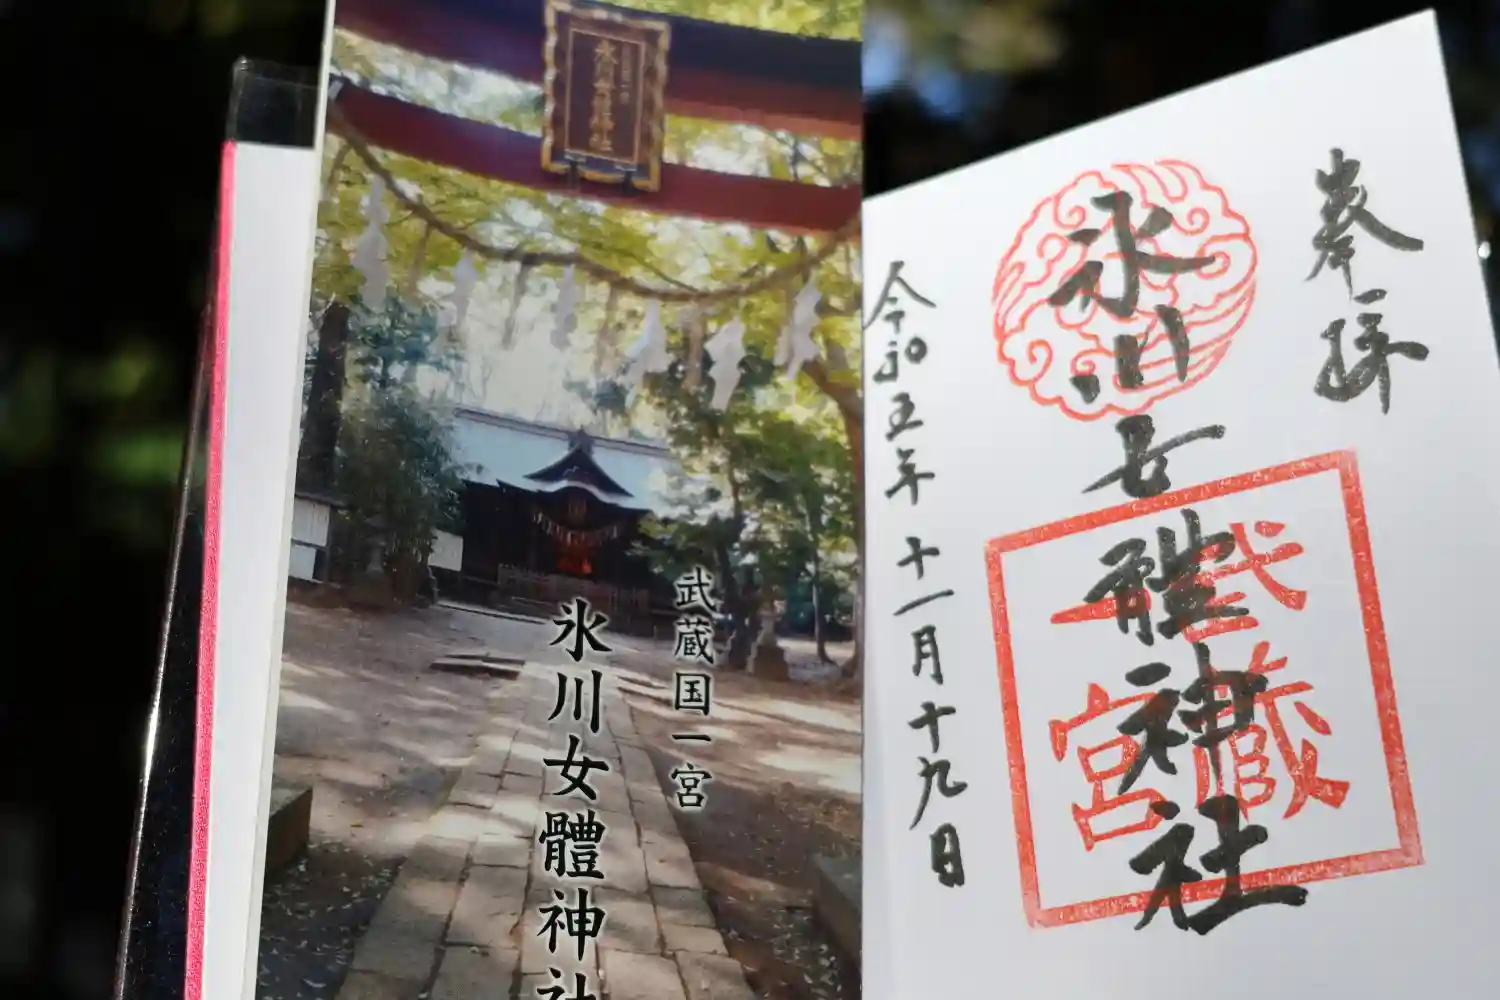 奉拝
氷川女體神社
武蔵
一宮
令和五年十一月十九日
氷川女體神社
武蔵国一宮
氷川女體神社